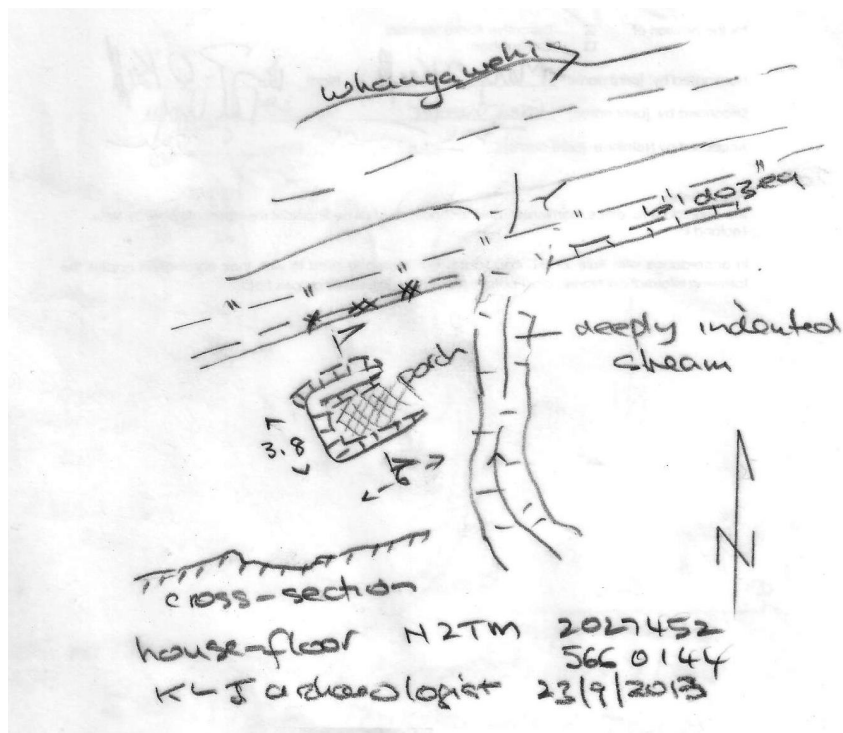 whangawehi
dozed
porch
deeply indented
stream
3.8
6
N
cross-section
house-floor NZTM 2027452
5660144
KLJ archaeologist 23/9/2013